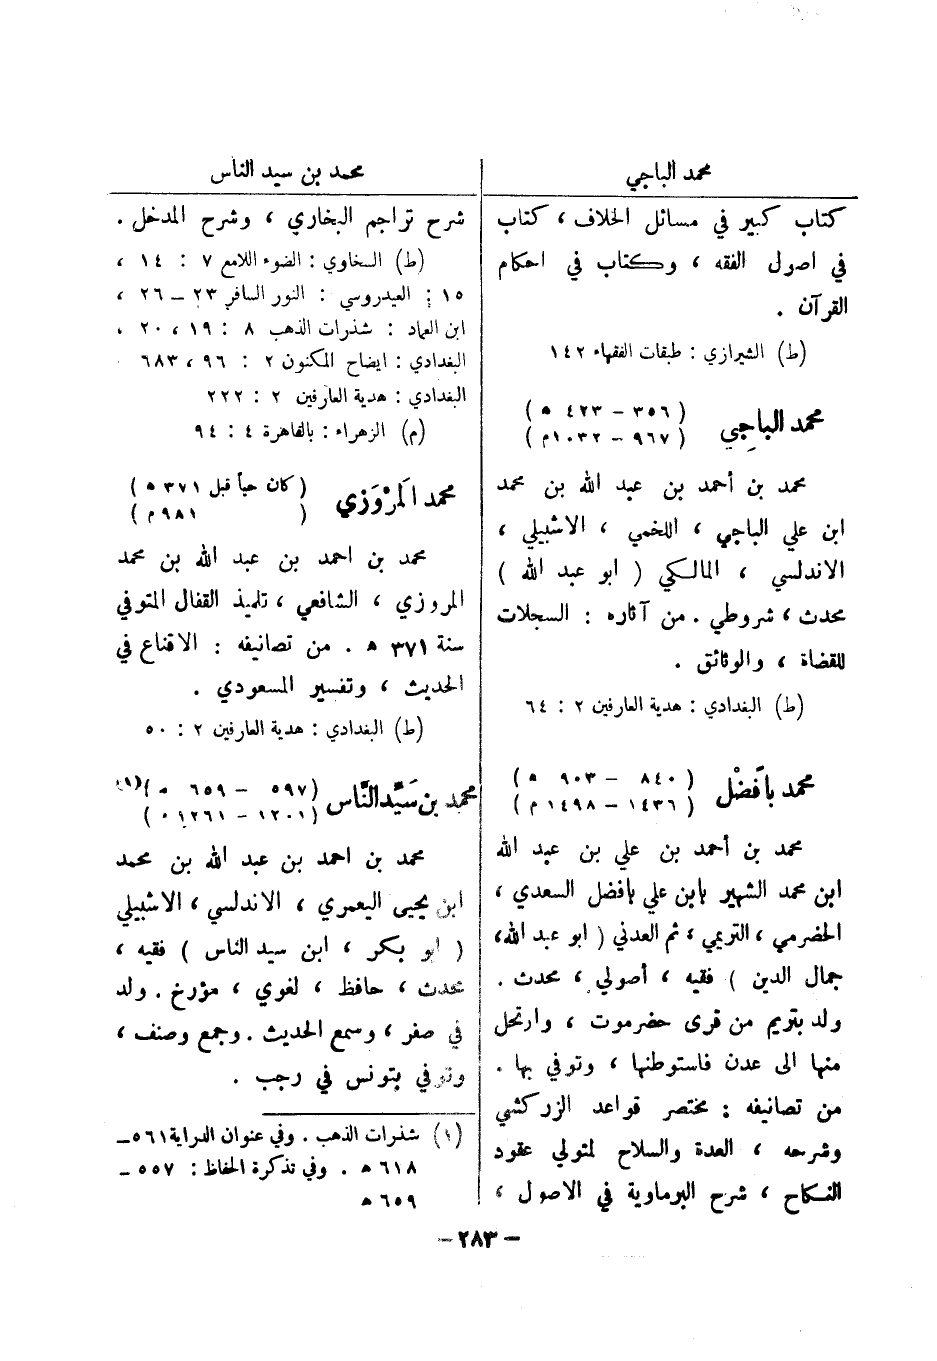 محمد الباجي
كتاب كبير في مسائل الخلاف ، كتاب
في اصول الفقه ، وكتاب في احكام
القرآن .
(ط) الشيرازي : طبقات الفقهاء ١٤٢
محمد الباجي
( ٣٥٦ – ٤٢٣ ه )
( ٩٦٧ – ١٠٣٢م )
محمد بن أحمد بن عبد الله بن محمد
ابن علي الباجي ، اللخمي ، الاشبيلي ،
الاندلسي ، المالكي ( ابو عبد الله )
محدث ، شروطي . من آثاره : السجلات
للقضاة ، والوثائق .
(ط) البغدادي : هدية العارفين ٢ : ٦٤
محمد بافَضْل
( ٨٤٠ – ٩٠٣ ه )
( ١٤٣٦ – ١٤٩٨ م )
محمد بن أحمد بن علي بن عبد الله
ابن محمد الشهير بابن علي بافضل السعدي ،
الحضرمي ، التريمي ، ثم العدني ( ابو عبد الله ،
جمال الدين ) فقيه ، أصولي ، محدث .
ولد بتريم من قرى حضرموت ، وارتحل
منها الى عدن فاستوطنها ، وتوفي بها .
من تصانيفه : مختصر قواعد الزركشي
وشرحه ، العدة والسلاح لمتولي عقود
النكاح ، شرح البرماوية في الاصول ،
محمد بن سيد الناس
شرح تراجم البخاري ، وشرح المدخل .
(ط) السخاوي : الضوء اللامع ٧ : ١٤ ،
١٥ : العيدروسي : النور السافر ٢٣ – ٢٦ ،
ابن العماد : شذرات الذهب ٨ : ١٩ ، ٢٠ ،
البغدادي : ايضاح المكنون ٢ : ٩٦ ، ٦٨٣
البغدادي : هدية العارفين ٢ : ٢٢٢
(م) الزهراء : بالقاهرة ٤ : ٩٤
محمد المَرْوَزي
( كان حياً قبل ٣٧١ ه )
( ٩٨١م )
محمد بن احمد بن عبد الله بن محمد
المروزي ، الشافعي ، تلميذ القفال المتوفي
سنة ٣٧١ ه . من تصانيفه : الاقناع في
الحديث ، وتفسير المسعودي .
(ط) البغدادي : هدية العارفين ٢ : ٥٠
محمد بن سَيِّد النَّاس
( ٥٩٧ – ٦٥٩ ه )(١)
( ١٢٠١ – ١٢٦١ م )
محمد بن احمد بن عبد الله بن محمد
ابن يحيى اليعمري ، الاندلسي ، الاشبيلي
( ابو بكر ، ابن سيد الناس ) فقيه ،
محدث ، حافظ ، لغوي ، مؤرخ . ولد
في صفر ، وسمع الحديث . وجمع وصنف ،
وتوفي بتونس في رجب .
(١) شذرات الذهب . وفي عنوان الدراية ٥٦١ –
٦١٨ ه . وفي تذكرة الحفاظ : ٥٥٧ –
٦٥٩ ه
– ٢٨٣ –